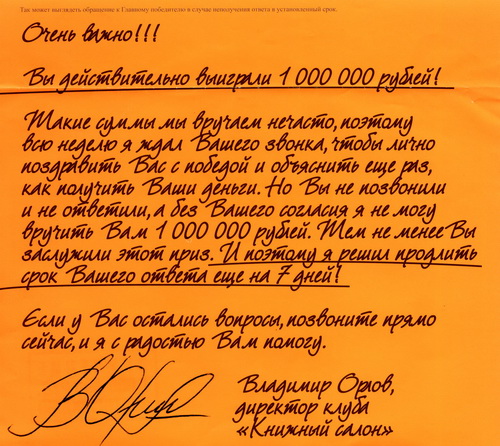 Так может выглядеть обращение к Главному победителю в случае неполучения ответа в установленный срок.
Очень важно!!!
Вы действительно выиграли 1 000 000 рублей!
Такие суммы мы вручаем нечасто, поэтому
всю неделю я ждал Вашего звонка, чтобы лично
поздравить Вас с победой и объяснить еще раз,
как получить Ваши деньги. Но Вы не позвонили
и не ответили, а без Вашего согласия я не могу
вручить Вам 1 000 000 рублей. Тем не менее Вы
заслужили этот приз. И поэтому я решил продлить
срок Вашего ответа еще на 7 дней!
Если у Вас остались вопросы, позвоните прямо
сейчас, и я с радостью Вам помогу.
Владимир Орлов,
директор клуба
«Книжный салон»